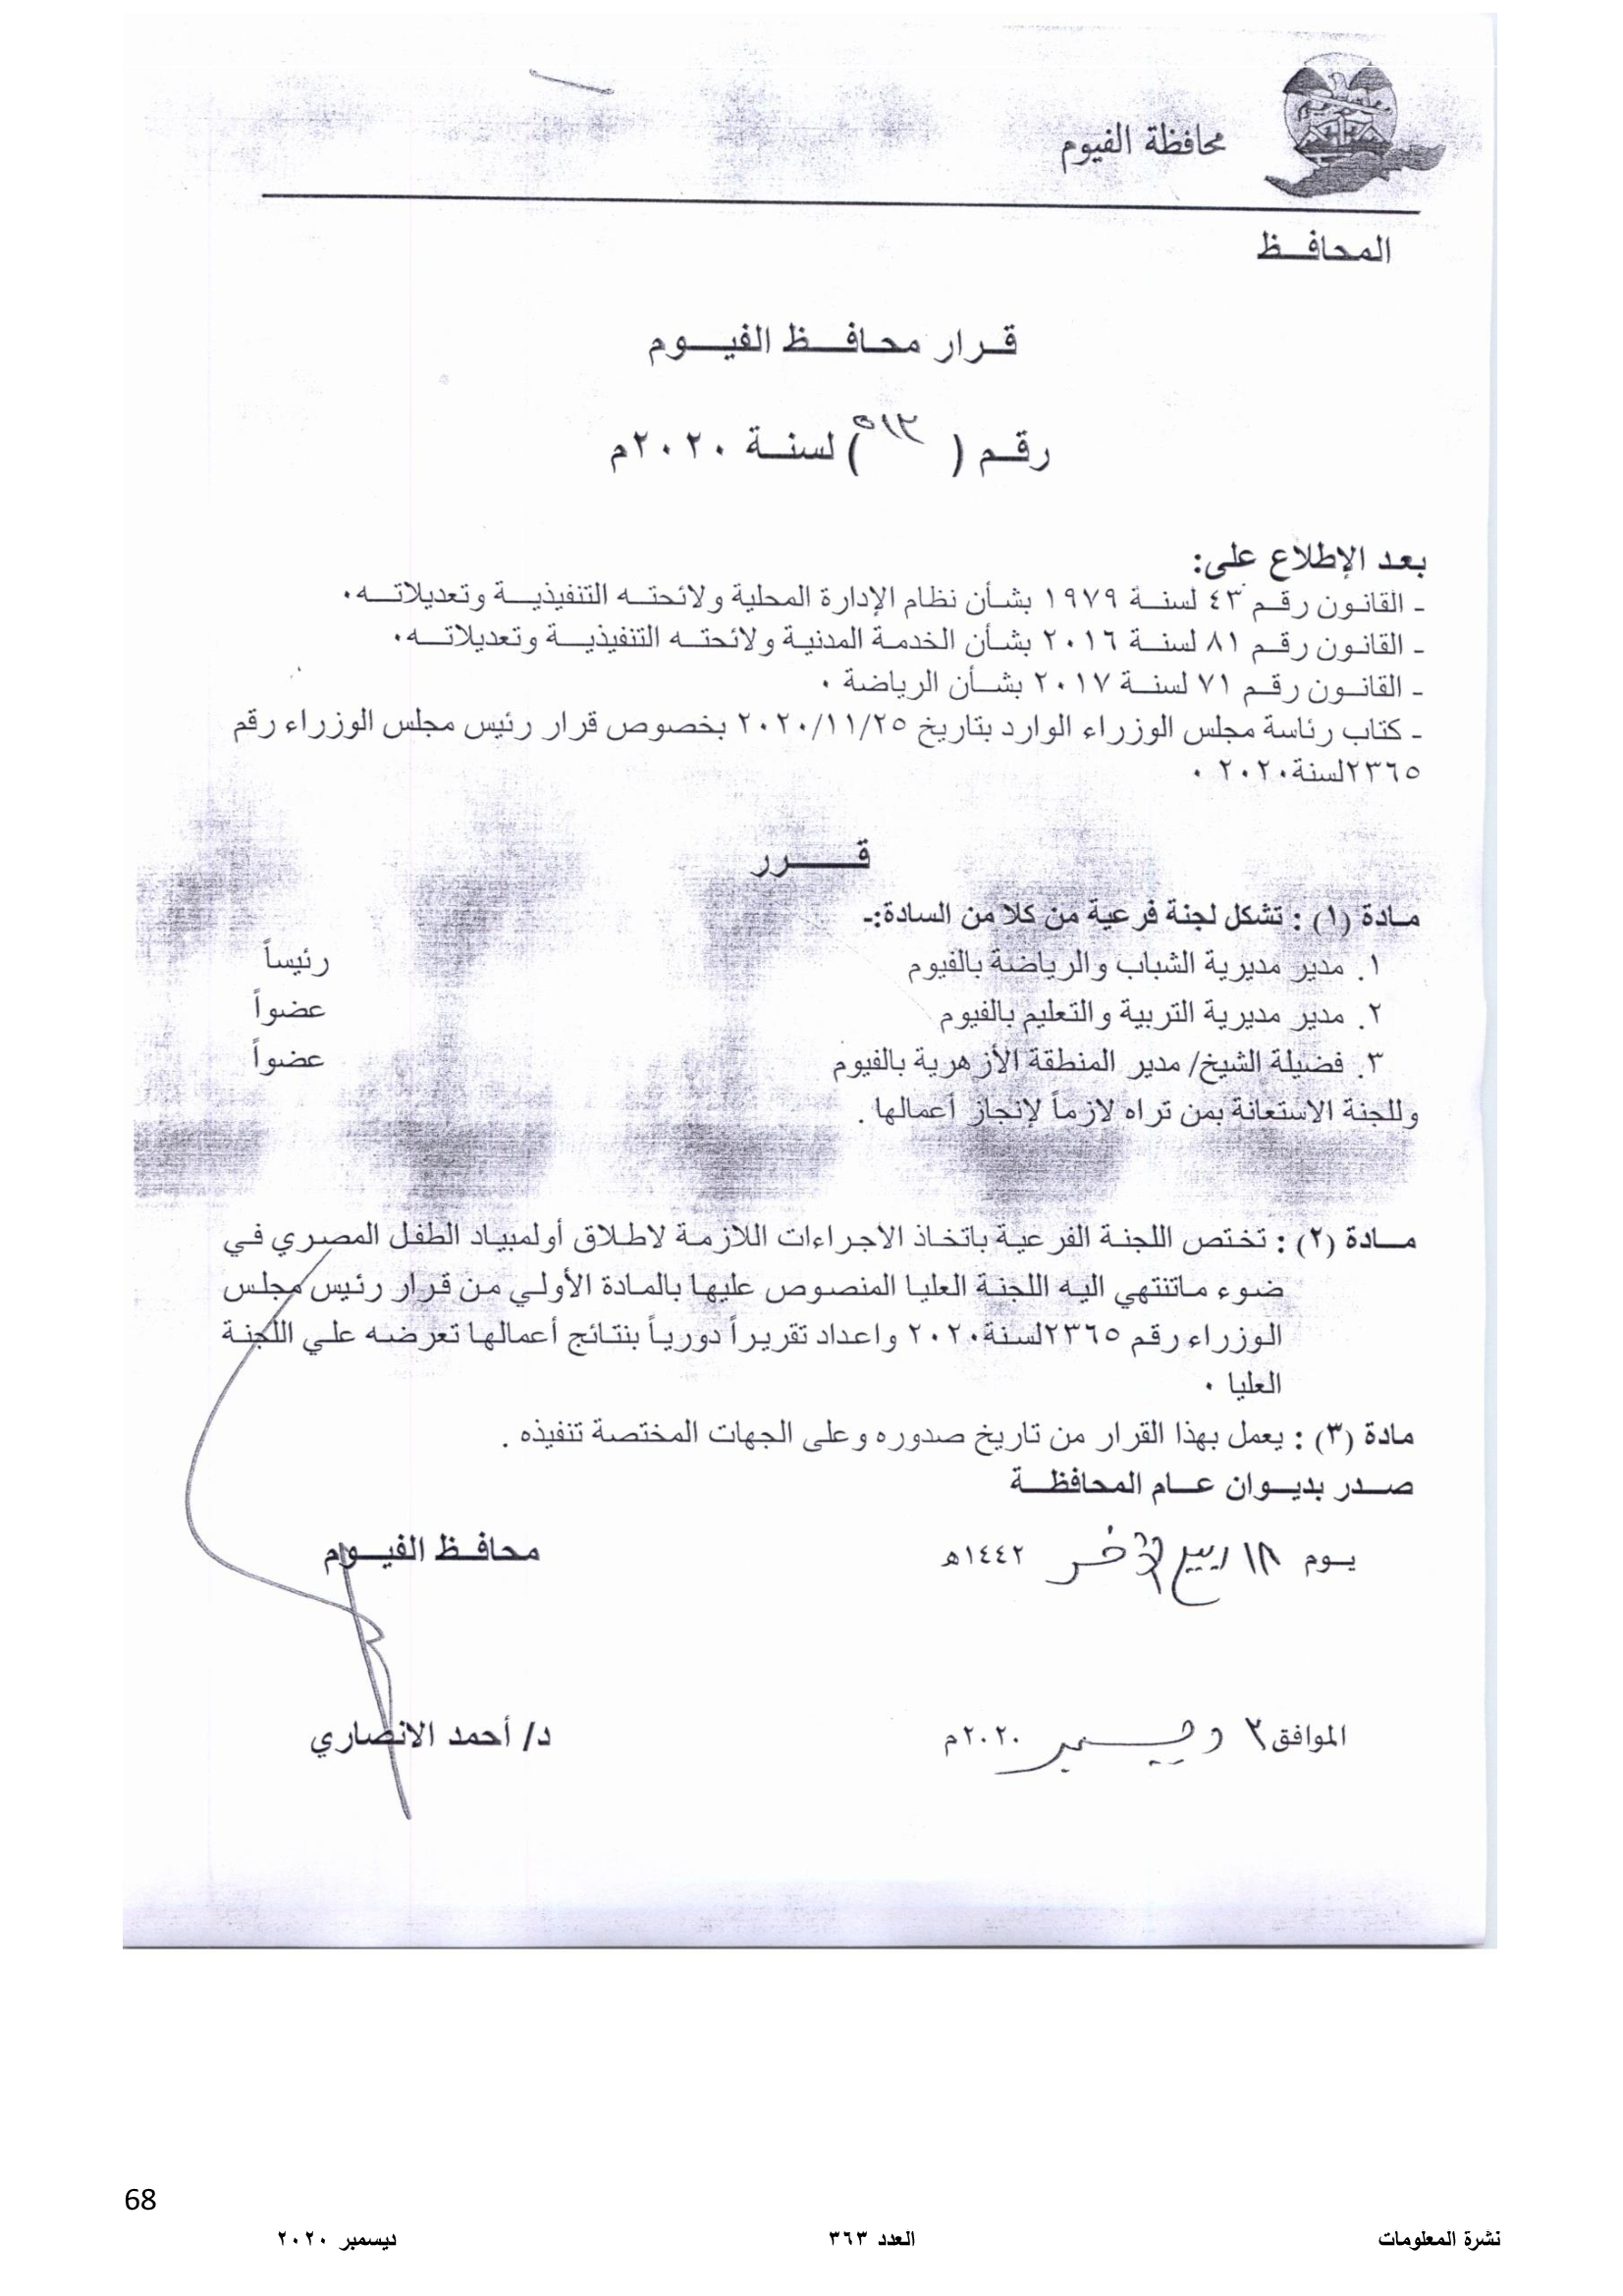 محافظة الفيوم
المحافــظ
قــرار محافــظ الفيــوم
رقــم ( ٥١٣ ) لسنــة ٢٠٢٠م
بعد الإطلاع على:
ـ القانون رقــم ٤٣ لسنــة ١٩٧٩ بشأن نظام الإدارة المحلية ولائحتــه التنفيذيــة وتعديلاتــه.
ـ القانون رقــم ٨١ لسنــة ٢٠١٦ بشأن الخدمة المدنية ولائحتــه التنفيذيــة وتعديلاتــه.
ـ القانــون رقــم ٧١ لسنــة ٢٠١٧ بشــأن الرياضة .
ـ كتاب رئاسة مجلس الوزراء الوارد بتاريخ ٢٠٢٠/١١/٢٥ بخصوص قرار رئيس مجلس الوزراء رقم
٢٣٦٥لسنة٢٠٢٠ .
قــــرر
مـادة (١) : تشكل لجنة فرعية من كلا من السادة:ـ
١. مدير مديرية الشباب والرياضة بالفيوم رئيساً
٢. مدير مديرية التربية والتعليم بالفيوم عضواً
٣. فضيلة الشيخ/ مدير المنطقة الأزهرية بالفيوم عضواً
وللجنة الاستعانة بمن تراه لازماً لإنجاز أعمالها .
مــادة (٢) : تختص اللجنة الفرعية باتخاذ الاجراءات اللازمة لاطلاق أولمبياد الطفل المصري في
ضوء ماتنتهي اليه اللجنة العليا المنصوص عليها بالمادة الأولي من قرار رئيس مجلس
الوزراء رقم ٢٣٦٥لسنة٢٠٢٠ واعداد تقريراً دورياً بنتائج أعمالها تعرضه علي اللجنة
العليا .
مادة (٣) : يعمل بهذا القرار من تاريخ صدوره وعلى الجهات المختصة تنفيذه .
صــدر بديــوان عــام المحافظــة
يــوم ١٨ ربيع الآخر ١٤٤٢هـ محافــظ الفيــوم
الموافق ٣ ديسمبر ٢٠٢٠م د/ أحمد الانصاري
68
نشرة المعلومات العدد ٣٦٣ ديسمبر ٢٠٢٠